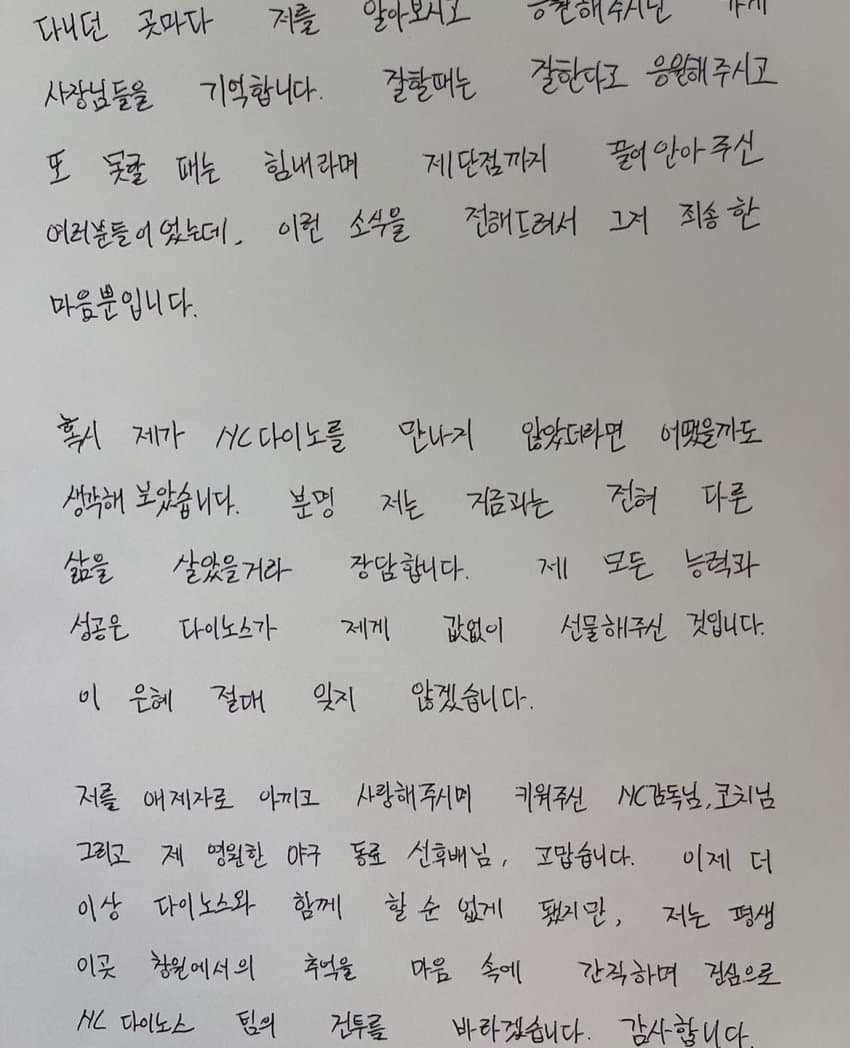 다니던 곳마다 저를 알아보시고 응원해주시던 가게
사장님들을 기억합니다. 잘할때는 잘한다고 응원해주시고
또 못할 때는 힘내라며 제단점까지 끌어안아 주신
여러분들이었는데, 이런 소식을 전해드려서 그저 죄송한
마음뿐입니다.
혹시 제가 NC다이노를 만나지 않았더라면 어땠을까도
생각해 보았습니다. 분명 저는 지금과는 전혀 다른
삶을 살았을거라 장담합니다. 제 모든 능력과
성공은 다이노스가 제게 값없이 선물해주신 것입니다.
이 은혜 절대 잊지 않겠습니다.
저를 애제자로 아끼고 사랑해주시며 키워주신 NC감독님, 코치님
그리고 제 영원한 야구 동료 선후배님, 고맙습니다. 이제 더
이상 다이노스와 함께 할 순 없게 됐지만, 저는 평생
이곳 창원에서의 추억을 마음 속에 간직하며 진심으로
NC 다이노스 팀의 건투를 바라겠습니다. 감사합니다.